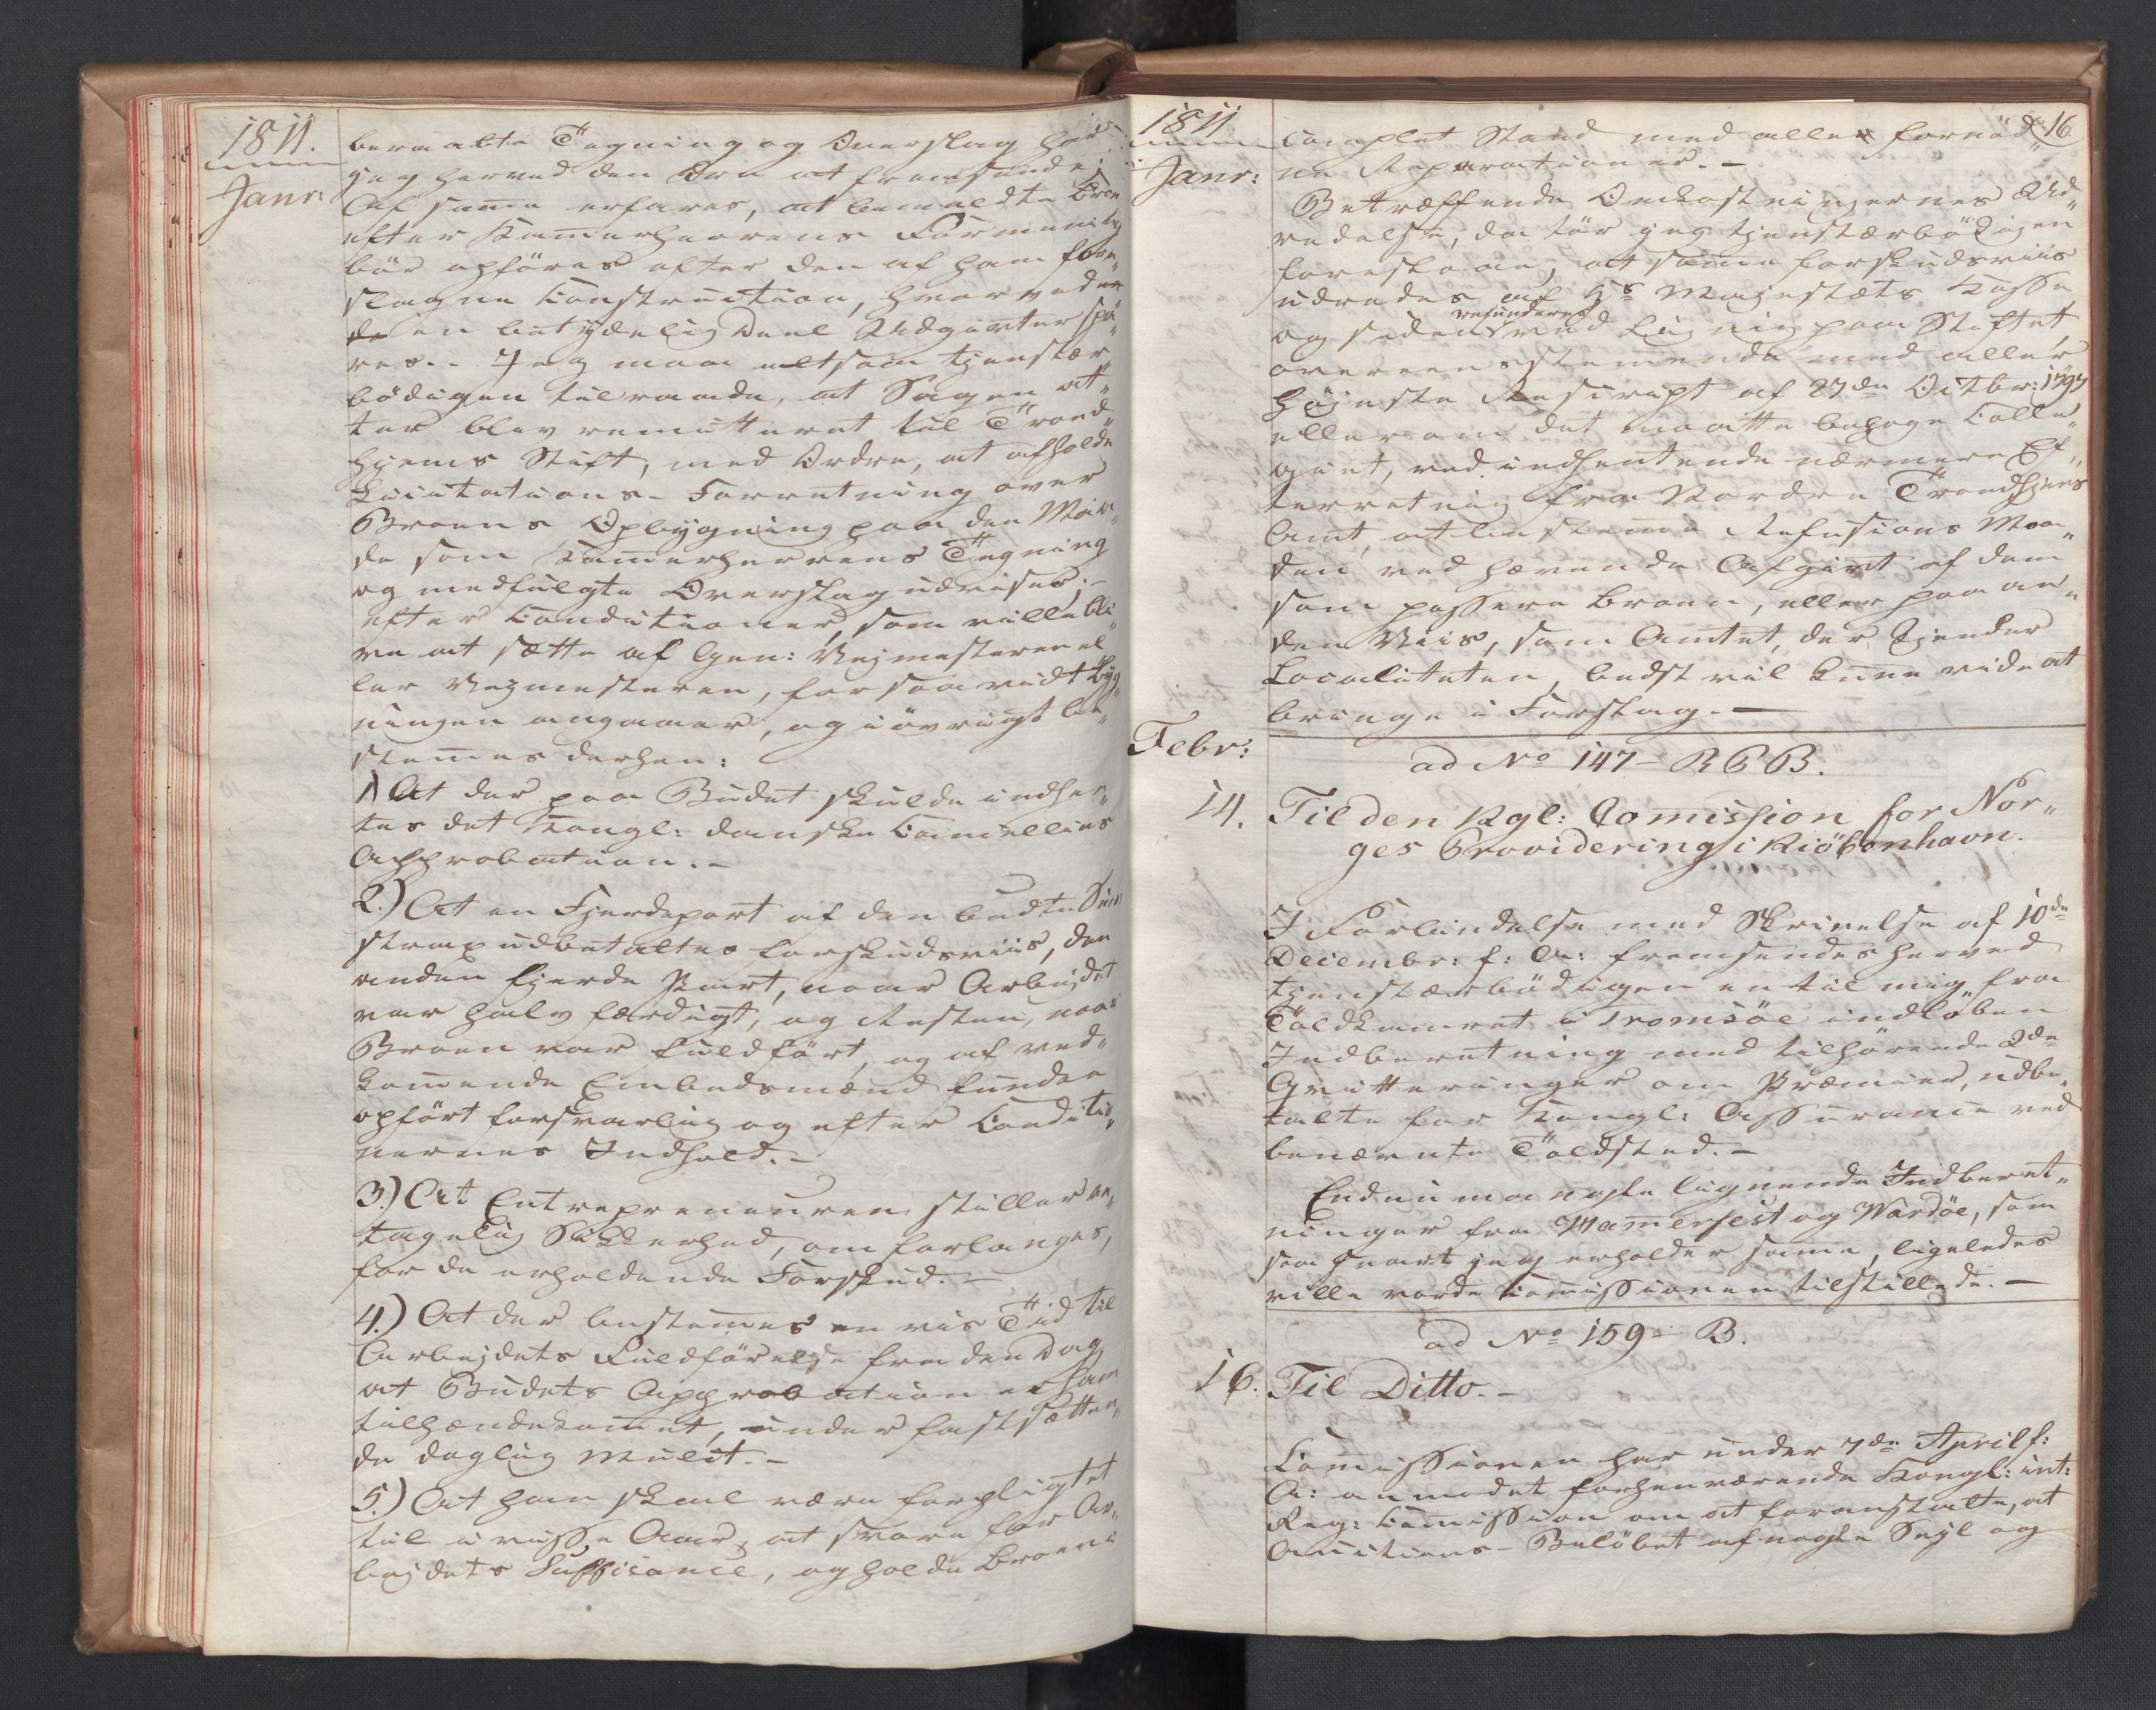 1811.
Janr
bemælte Tegning og Overslag har
jeg herved den Ære at fremsende;
Af samme erfares, at bemældte Broe
efter Kamerherrens Formening
bör opföres efter den af ham fore„
slagne Construction, hvorved der
en betydelig Deel Udgivter spa„
res.. Jeg maa altsaa tjenstær„
bödigen tilraade, at Sagen at„
ter blev remitteret til Trond„
hjems Stift, med Ordre, at afholde
Licitations-Forretning over
Broens Opbygning paa den Maa„
de som Kamerherrens Tegning
og medfulgte Overslag udviser;
efter Conditioner, som ville bli„
ve at sætte af Gen: Vejmesteren el„
ler Vejmesteren, for saavidt Byg„
ningen angaaer, og i övrigt be„
stemes derhen:
1) At der paa Budet skulde indhen„
tes det Kongl: danske Cancellies
Approbation.-
2.) At en Fjerdepart af den budte Sum
strax udbetaltes forskudsviis, den
anden fjerde Part, naar Arbejdet
var halv færdigt, og Resten, naar
Broen var fuldfört, og af ved„
komende Embedsmænd funden
opfört forsvarlig og efter Conditio„
nernes Indhold.-
3.) At Entrepreneuren stiller an„
tagelig Sikkerhed, om forlanges,
for de erholdende Forskud.-
4.) At der bestemes en vis Tid til
Arbejdets Fuldförelse fra den Dag
at Budets Approbation er ham
tilhændekomet, under fastsætten„
de daglig Mulct.-
5.) At han skal være forpligtet
til i visse Aar, at svare for Ar„
bejdets Suffisance, og holde Broen i
1811
Janr:
16
complet Stand med alle fornöd„
ne Reparationer.-
Betræffende Omkostningernes Ud„
redelse, da tör jeg tjenstærbödigen
foreslaae, at samme forskudsviis
udredes af Hs Majestæts Kasse
refunderes
og siden ved Ligning paa Stiftet,
overeenstemende med aller„
höjeste Rescript af 27de Octbr: 1797
eller om det maatte behage Colle„
giet, ved indhentende nærmere Ef„
terretning fra Nordre Trondhjems
Amt, at bestemme Refusions Maa„
den ved hævende Afgivt af dem
som passere Broen, eller paa an„
den Viis, som Amtet, der kjender
Localiteten, bedst vil kunne vide at
bringe i Forslag.-
Febr:
ad No 147- R P B.
14. Til den Kgl: Comission for Nor„
ges Providering i Kiöbenhavn.
I Forbindelse med Skrivelse af 10de
Decembr: f: A: fremsendes herved
tjenstærbödigen en til mig fra
Toldkamret i Tromsöe indlöben
Indberetning med tilhörende 2de
Qvitteringer om Præmier, udbe„
talte for Kongl: Assurance ved
benævnte Toldsted.-
Endnu mangle lignende Indberet„
ninger fra Hamerfest og Wardöe, som
saa snart jeg erholder samme, ligeledes
ville vorde Comissionen tilstillede.-
ad No 159- B.
16. Til Ditto.-
Comissionen har under 7de April f:
A: anmodet forhenværende Kongl: int:
Reg: Comission om at foranstalte, at
Auctions-Belöbet af nogle Sejl og